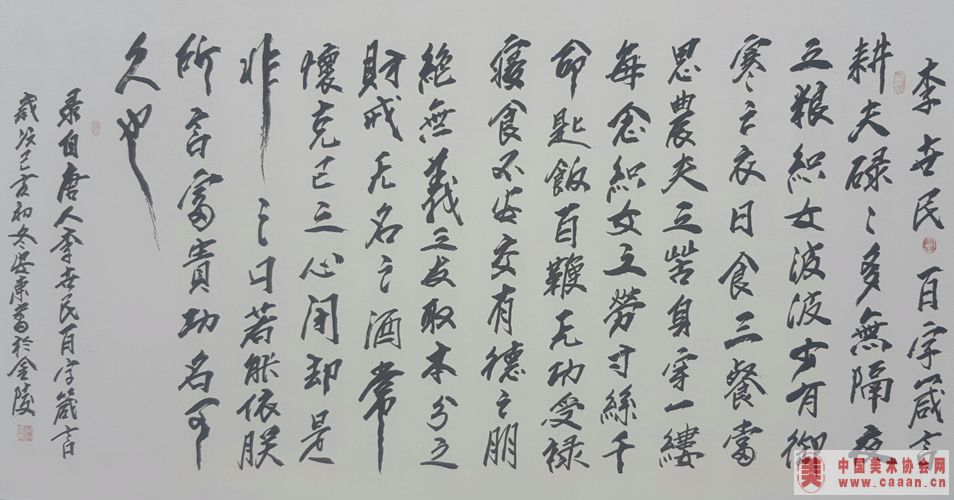 李世民百字箴言
耕夫碌〻多無隔夜
之粮織女波波少有御
寒之衣日食三餐當
思農夫之苦身穿一縷
每念織女之勞寸絲千
命匙飯百鞭无功受禄
寢食不安交有德之朋
絕無義之友取本分之
財戒无名之酒常
懷克己之心闭却是
非之口若能依朕
所言富貴功名可
久也
录自唐人李世民百字箴言
歲次己亥初冬安東書於金陵
中国美术协会网
www.caaan.cn